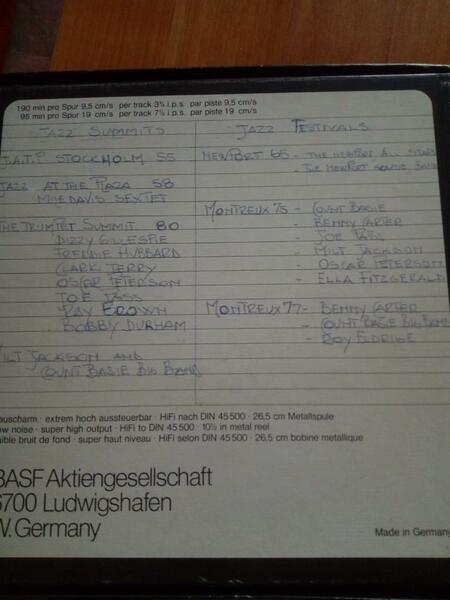 190 min pro Spur 9,5 cm/s per track 3¾ i.p.s. par piste 9,5 cm/s
95 min pro Spur 19 cm/s per track 7½ i.p.s. par piste 19 cm/s
JAZZ SUMMITS
J.A.T.P. STOCKHOLM 55
JAZZ AT THE PLAZA 58
MILE DAVIS SEXTET
THE TRUMPET SUMMIT 80
DIZZY GILLESPIE
FREDDIE HUBBARD
CLARK TERRY
OSCAR PETERSON
JOE PASS
RAY BROWN
BOBBY DURHAM
MILT JACKSON AND
COUNT BASIE BIG BAND
JAZZ FESTIVALS
NEWPORT 65 - THE NEWPORT ALL STARS
- THE NEWPORT HOUSE BAND
MONTREUX 75 - COUNT BASIE
- BENNY CARTER
- JOE PASS
- MILT JACKSON
- OSCAR PETERSON
- ELLA FITZGERALD
MONTREUX 77 - BENNY CARTER
- COUNT BASIE BIG BAND
- ROY ELDRIGE
rauscharm · extrem hoch aussteuerbar · HiFi nach DIN 45 500 · 26,5 cm Metallspule
low noise · super high output · HiFi to DIN 45 500 · 10½ in metal reel
faible bruit de fond · super haut niveau · HiFi selon DIN 45 500 · 26,5 cm bobine metallique
BASF Aktiengesellschaft
6700 Ludwigshafen
W. Germany
Made in Germany